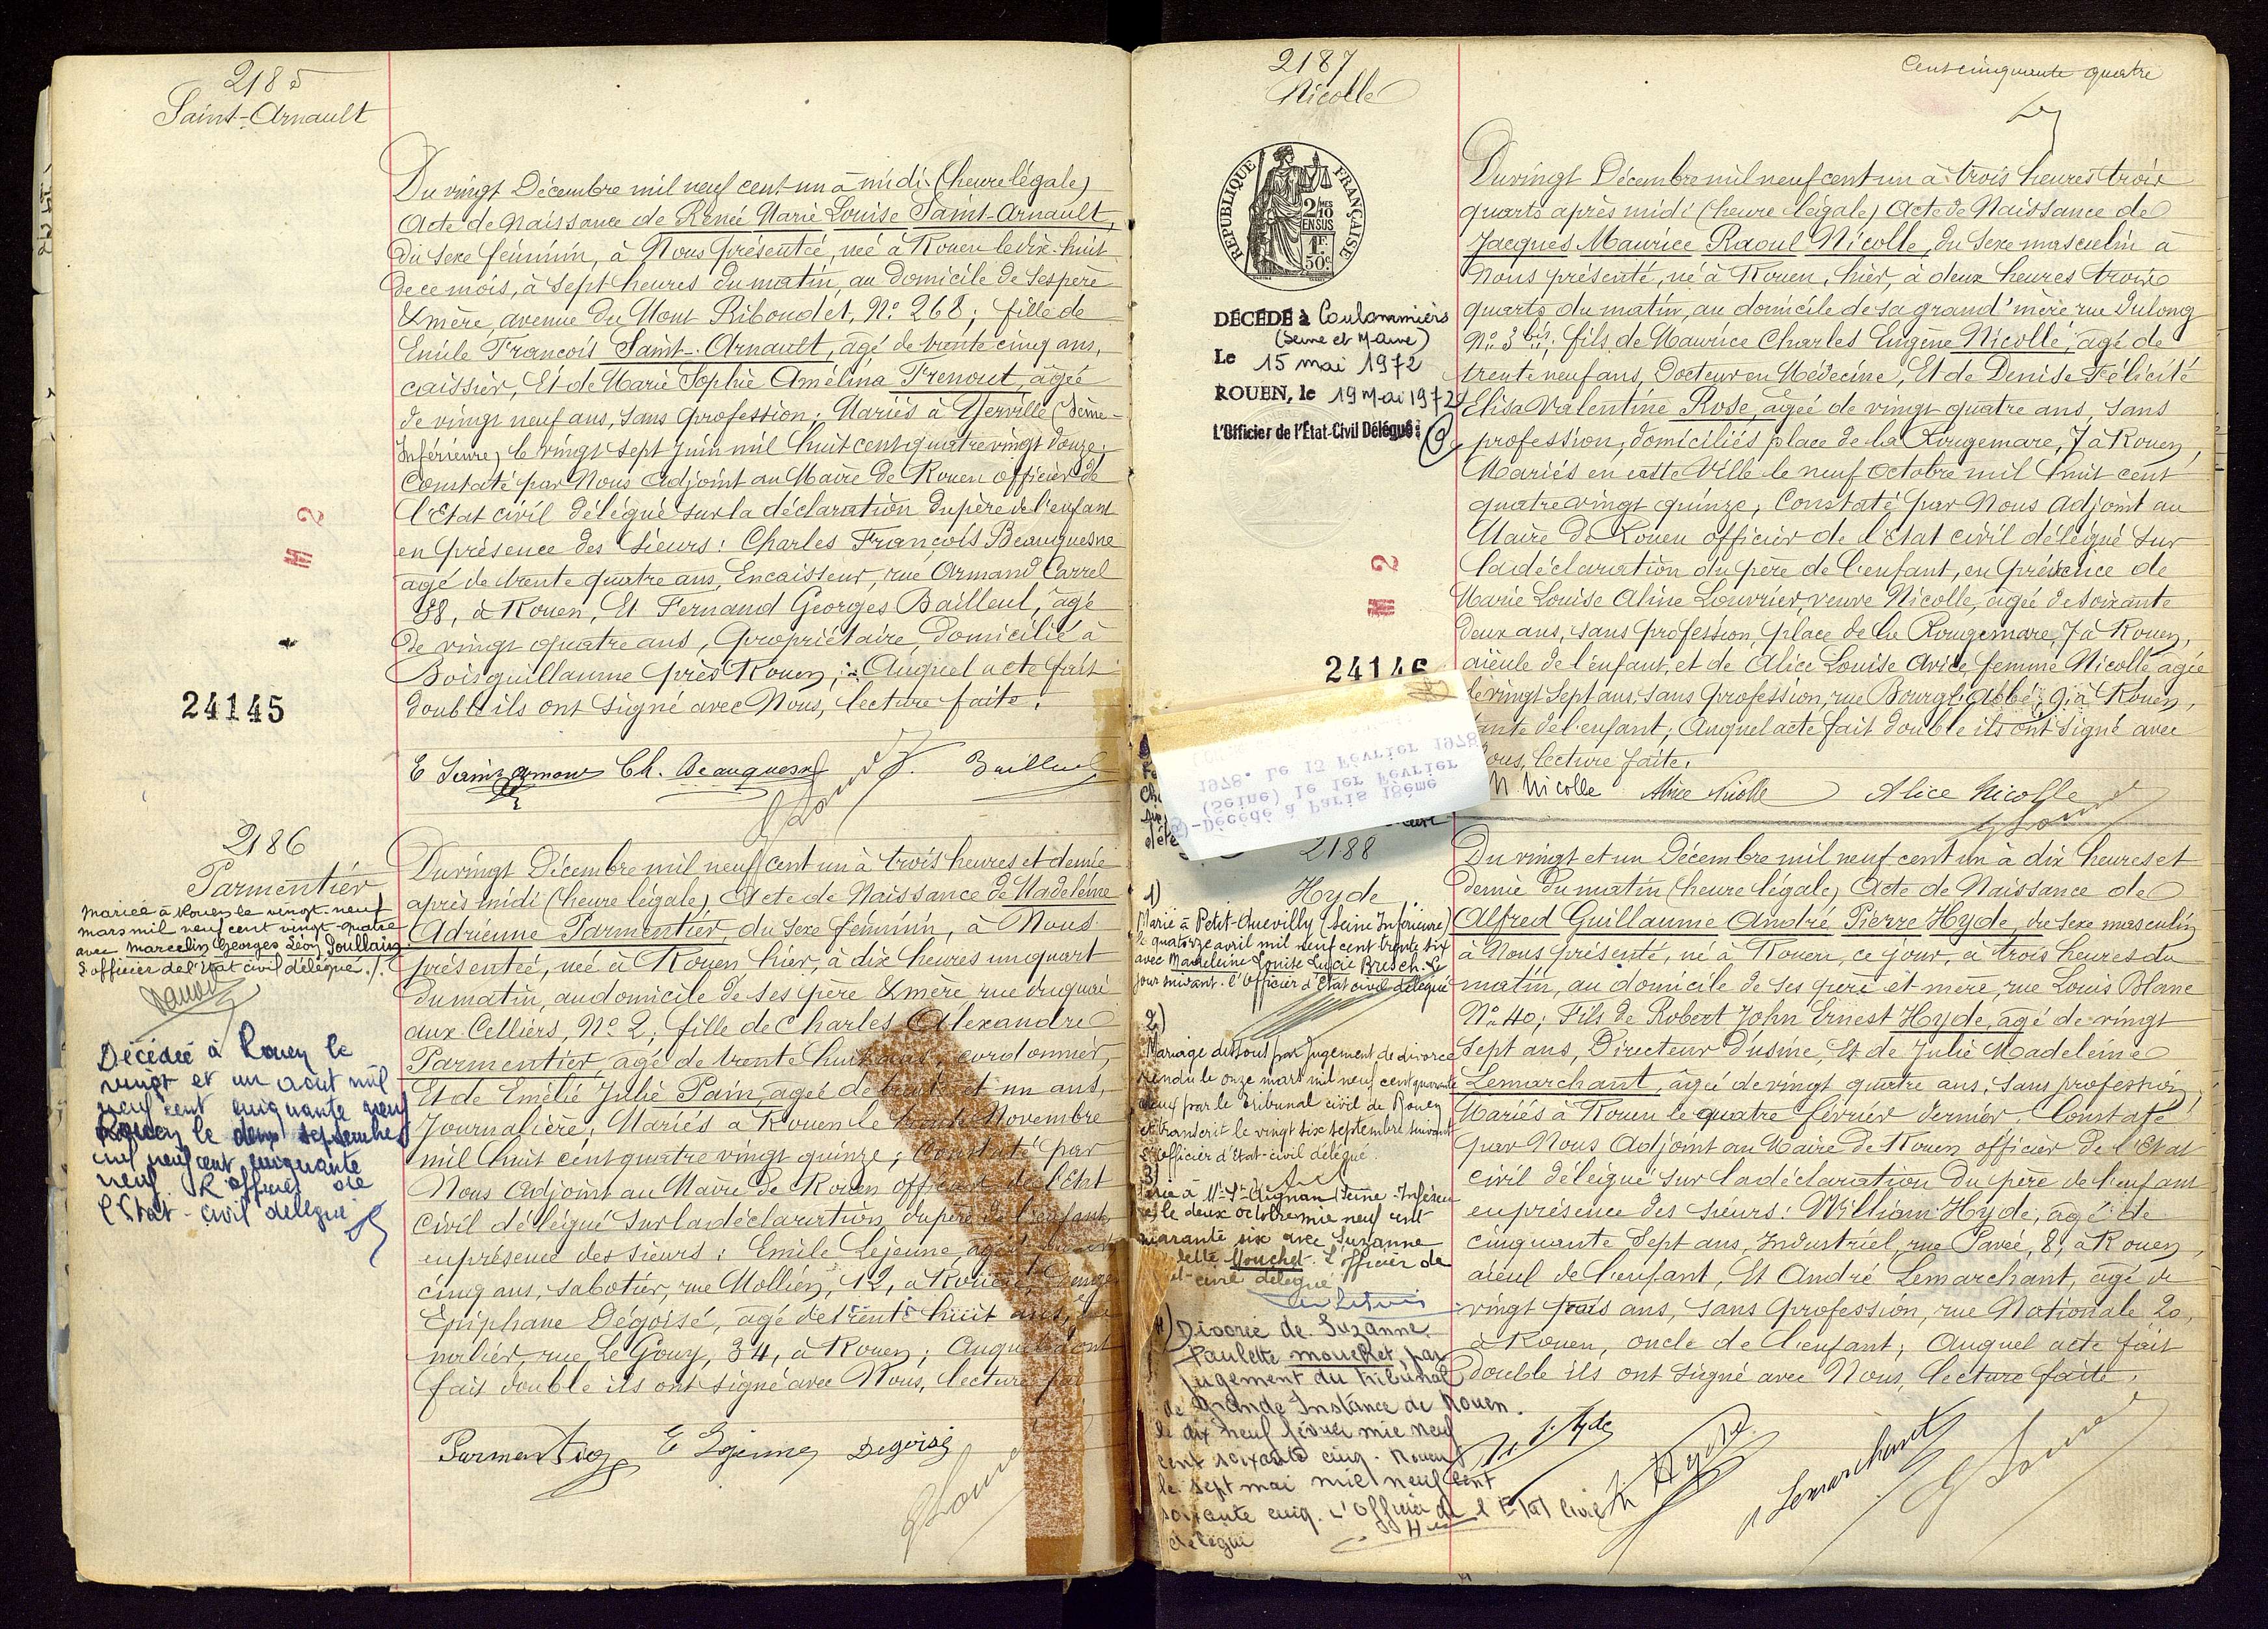 2185
Saint-Arnault
Du vingt Décembre mil neuf cent un à midi (heure légale)
Acte de Naissance de Renée Marie Louise Saint-Arnault,
du sexe féminin, à Nous présentée, née à Rouen le dix-huit
de ce mois, à sept heures du matin, au domicile de ses père
& mère, avenue du Mont Riboudet, No. 268; fille de
Emile François Saint-Arnault, âgé de trente cinq ans,
caissier, Et de Marie Sophie Amélina Frenout, âgée
de vingt neuf ans, sans profession; Mariés à Yerville (Seine-
Inférieure) le vingt sept Juin mil huit cent quatre vingt douze;
Constaté par Nous Adjoint au Maire de Rouen officier de
l'Etat civil délégué sur la déclaration du père de l'enfant
en présence des sieurs: Charles François Beauquesne
agé de trente quatre ans, Encaisseur, rue Armand Carrel
88, à Rouen, Et Fernand Georges Bailleul, âgé
de vingt quatre ans, Propriétaire, domicilié à
Boisguillaume près Rouen; Auquel acte fait
double ils ont signé avec Nous, lecture faite.
Ch. Beauquesne
24145
2186
Parmentier
Mariée à Rouen le vingt-neuf
mars mil neuf cent vingt-quatre
avec Marcelin Georges Léon Poullain
L'officier de l'Etat civil délégué./.
Décédée à Rouen le
vingt et un août mil
neuf cent cinquante neuf
Rouen le deux septembre
mil neuf cent cinquante
neuf L'officier de
l'Etat-Civil délégué
Du vingt Décembre mil neuf cent un à trois heures et demie
après midi (heure légale) Acte de Naissance de Madeleine
Adrienne Parmentier, du sexe féminin, à Nous
présentée, née à Rouen, hier, à dix heures un quart
du matin, au domicile de ses père & mère rue du quai
aux Celliers, No. 2; fille de Charles Alexandre
Parmentier, agé de trente huit ans, cordonnier,
Et de Emélie Julie Pain, agée de trente et un ans,
Journalière; Mariés à Rouen le trente Novembre
mil huit cent quatre vingt quinze; Constaté par
Nous Adjoint au Maire de Rouen officier de l'Etat
civil délégué sur la déclaration du père de l'enfant
en présence des sieurs: Emile Lejeune, agé de
cinq ans, sabotier, rue Mollien, 12, à Rouen,
Epiphane Dégoisé, agé de trente huit ans,
rue Le Gouy, 34, à Rouen; Auquel
fait double ils ont signé avec Nous, lecture
Parmentier E Lejeune Degoisé
2187
Nicolle
Cent cinquante quatre
RÉPUBLIQUE FRANÇAISE
2/10 MES
EN SUS
1F.
50c.
DÉCÉDÉ à Coulommiers
(Seine et Marne)
Le 15 mai 1972
ROUEN, le 19 Mai 1972
L'Officier de l'État-Civil Délégué:
24146
Du vingt Décembre mil neuf cent un à trois heures trois
quarts après midi (heure légale) Acte de Naissance de
Jacques Maurice Raoul Nicolle, du sexe masculin à
Nous présenté, né à Rouen, hier, à deux heures trois
quarts du matin, au domicile de sa grand'mère rue Dulong
No. 3 bis; fils de Maurice Charles Eugène Nicolle, agé de
trente neuf ans, Docteur en Médecine, Et de Denise Félicité
Elisa Valentine Rose, agée de vingt quatre ans, sans
profession, domiciliés place de la Rougemare, 7 à Rouen,
Mariés en cette Ville le neuf octobre mil huit cent
quatre vingt quinze, Constaté par Nous Adjoint au
Maire de Rouen officier de l'Etat civil délégué sur
la déclaration du père de l'enfant, en présence de
Marie Louise Aline Louvrier, veuve Nicolle, agée de soixante
deux ans, sans profession, place de la Rougemare, 7 à Rouen,
aïeule de l'enfant, et de Alice Louise Avice, femme Nicolle agée
de vingt sept ans, sans profession, rue Bourg l'Abbé, 9, à Rouen,
tante de l'enfant; Auquel acte fait double ils ont signé avec
Nous, lecture faite.
M Nicolle Alice Nicolle
)-Décédé à Paris 18ème
(Seine) le 1er Février
1978. Le 15 Février 1978
2188
Hyde
1)
Marié à Petit-Quevilly (Seine Inférieure)
le quatorze avril mil neuf cent trente six
avec Madeleine Louise Lucie Brisch. Le
jour suivant. l'Officier d'État civil délégué
2)
Mariage dissous par jugement de divorce
rendu le onze mars mil neuf cent quarante
deux par le tribunal civil de Rouen
et transcrit le vingt six septembre suivant
L'officier d'Etat-civil délégué.
3)
Marié à Mt-St-Aignan (Seine-Inférieu
re) le deux octobre mil neuf cent
quarante six avec Suzanne
Mouchet. L'officier de
civil délégué
4) Divorce de Suzanne
Paulette Mouchet, par
jugement du tribunal
de Grande Instance de Rouen.
le dix neuf février mil neuf
cent soixante cinq. Rouen
le sept mai mil neuf cent
soixante cinq. L'Officier de l'Etat Civil
délégué
Du vingt et un Décembre mil neuf cent un à dix heures et
demie du matin (heure légale) Acte de Naissance de
Alfred Guillaume André Pierre Hyde, du sexe masculin
à Nous présenté, né à Rouen, ce jour, à trois heures du
matin, au domicile de ses père et mère, rue Louis Blanc
No. 40; Fils de Robert John Ernest Hyde, agé de vingt
sept ans, Directeur d'usine, Et de Julie Madeleine
Lemarchant, agée de vingt quatre ans, sans profession,
Mariés à Rouen le quatre février dernier. Constaté
par Nous Adjoint au Maire de Rouen officier de l'Etat
civil délégué sur la déclaration du père de l'enfant
en présence des sieurs: William Hyde, agé de
cinquante sept ans, Industriel, rue Pavée, 8, à Rouen,
aïeul de l'enfant, Et André Lemarchant, agé de
vingt trois ans, sans profession, rue Nationale 20,
à Rouen, oncle de l'enfant; Auquel acte fait
double ils ont signé avec Nous, lecture faite.
Hyde
A Lemarchant